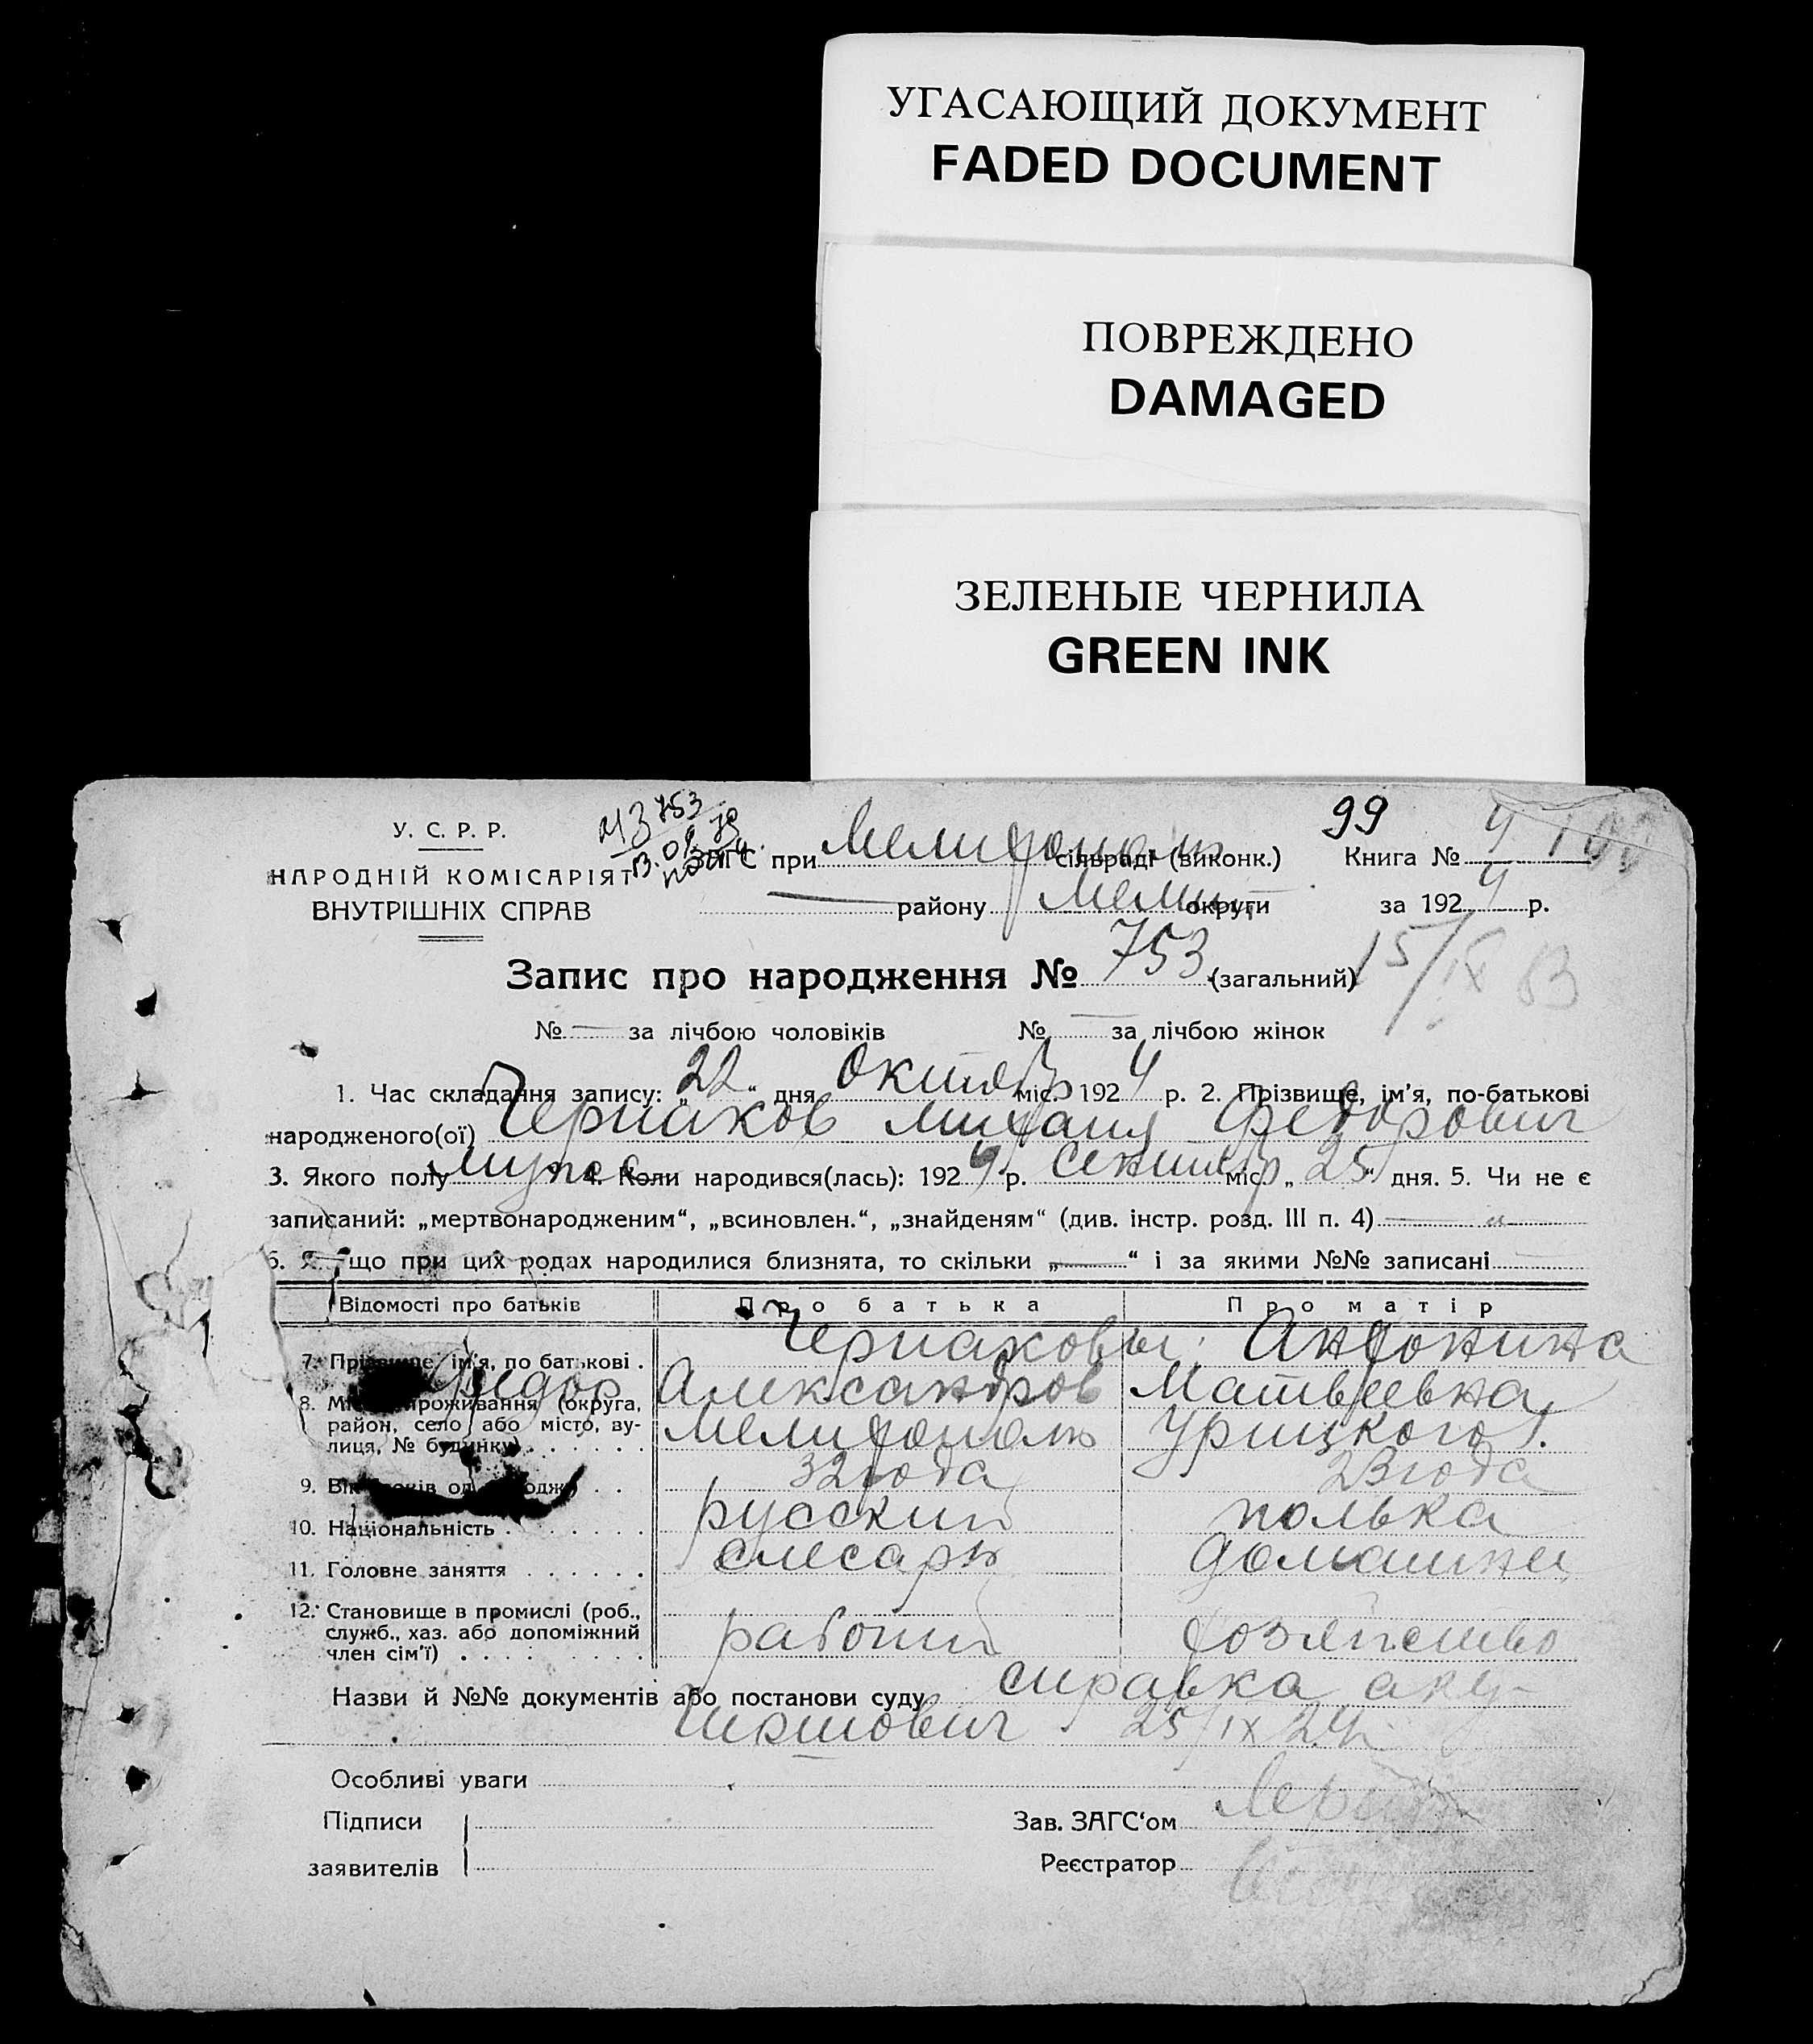 УГАСАЮЩИЙ ДОКУМЕНТ
FADED DOCUMENT
ПОВРЕЖДЕНО
DAMAGED
ЗЕЛЕНЫЕ ЧЕРНИЛА
GREEN INK
У. С. Р. Р.
НАРОДНІЙ КОМІСАРІЯТ
ВНУТРІШНІХ СПРАВ
753
99
ЗАГС при Мелитополь сільраді (виконк.) Книга № 4 100
— району Мелит округи за 1924 р.
Запис про народження № 753 (загальний) 15/IX 83
№ — за лічбою чоловіків № — за лічбою жінок
1. Час складання запису: „22“ дня Октябр міс. 1924 р. 2. Прізвище, ім'я, по-батькові
народженого(ої) Чермаков Михаил Федорович
3. Якого полу мужс 4. Коли народився(лась): 1924 р. Сентябр міс. „25“ дня. 5. Чи не є
записаний: „мертвонародженим“, „всиновлен.“, „знайденям“ (див. інстр. розд. III п. 4) — „ —
6. Я що при цих родах народилися близнята, то скільки „—“ і за якими №№ записані
Відомості про батьків Про батька Про матір
Чермаковы: Антонина
7. Прізвище, ім'я, по батькові . Федор Александров Матвеевна
8. Місце проживання (округа, район, село або місто, вулиця, № будинку) . . . . . . Мелитополь Урицкого 1.
9. Вік . . 32 года 23 года
10. Національність . . . . . . . русский полька
11. Головне заняття . . . . . . слесарь домашнее
12. Становище в промислі (роб., служб., хаз. або допоміжний член сім'ї) . . . . . . . . . рабочий хозяйство
Назви й №№ документів або постанови суду справка аку-
25/IX 24
Особливі уваги
Підписи
заявителів
Зав. ЗАГС'ом
Реєстратор